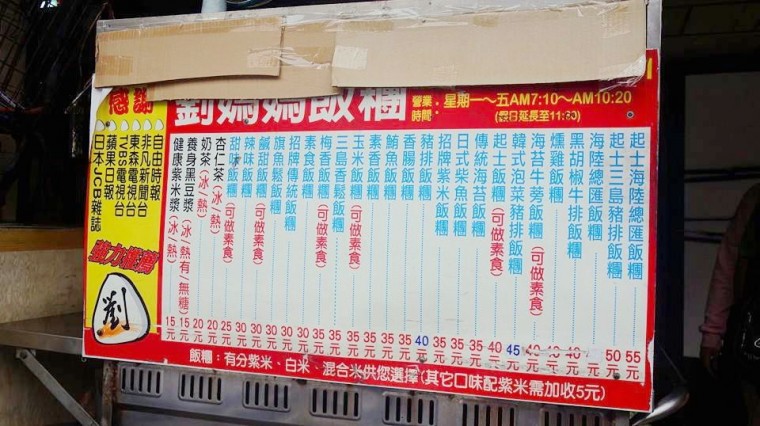 感謝
劉媽媽飯糰
營業時間：星期一～五AM7:10～AM10:20
(假日延長至11:30)
起士海陸總匯飯糰 55元
起士三島豬排飯糰 50元
海陸總匯飯糰
黑胡椒牛排飯糰
燻雞飯糰
海苔牛蒡飯糰(可做素食)
韓式泡菜豬排飯糰 45元
起士飯糰(可做素食) 40元
傳統海苔飯糰 35元
日式柴魚飯糰 35元
招牌紫米飯糰 35元
豬排飯糰 40元
香腸飯糰 35元
鮪魚飯糰 35元
素香飯糰 35元
玉米飯糰(可做素食) 35元
三島香鬆飯糰 35元
梅香飯糰(可做素食) 35元
素食飯糰 30元
招牌傳統飯糰 30元
旗魚鬆飯糰 30元
鹹甜飯糰(可做素食) 30元
辣味飯糰 30元
甜味飯糰(可做素食) 25元
杏仁茶(冰/熱) 20元
奶茶(冰/熱) 20元
養身黑豆漿(冰/熱有/無糖) 15元
健康紫米漿(冰/熱) 15元
自由時報
非凡新聞台
東森電視台
TVBS電視台
蘋果日報
日本JCB雜誌
強力推薦
劉
飯糰：有分紫米、白米、混合米供您選擇(其它口味配紫米需加收5元)